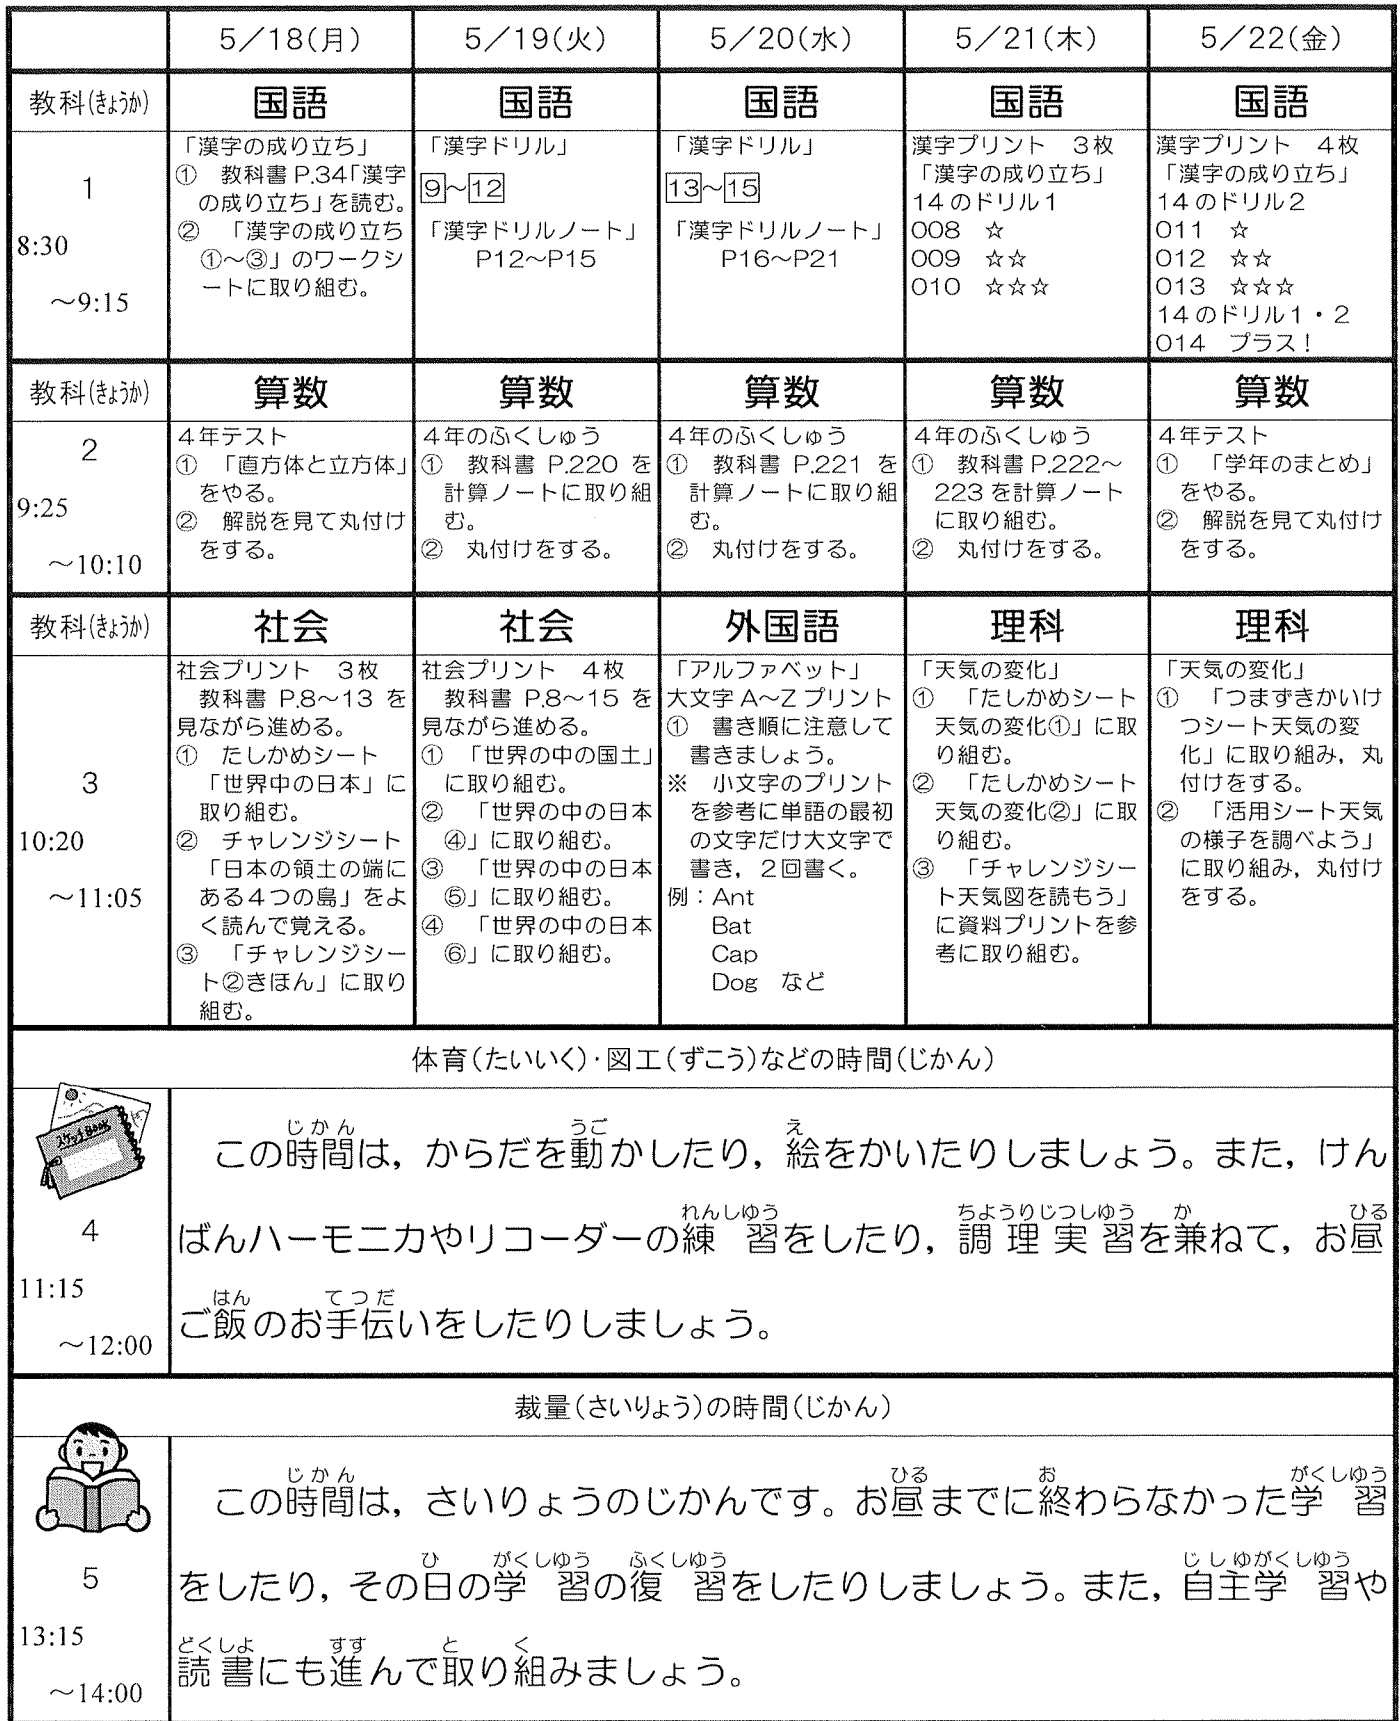 5/18(月) 5/19(火) 5/20(水) 5/21(木) 5/22(金)
教科(きょうか) 国語 国語 国語 国語 国語
1
8:30
～9:15
「漢字の成り立ち」
① 教科書 P.34「漢字
の成り立ち」を読む。
② 「漢字の成り立ち
①～③」のワークシ
ートに取り組む。
「漢字ドリル」
9～12
「漢字ドリルノート」
P12～P15
「漢字ドリル」
13～15
「漢字ドリルノート」
P16～P21
漢字プリント 3枚
「漢字の成り立ち」
14のドリル1
008 ☆
009 ☆☆
010 ☆☆☆
漢字プリント 4枚
「漢字の成り立ち」
14のドリル2
011 ☆
012 ☆☆
013 ☆☆☆
14のドリル1・2
014 プラス！
教科(きょうか) 算数 算数 算数 算数 算数
2
9:25
～10:10
4年テスト
① 「直方体と立方体」
をやる。
② 解説を見て丸付け
をする。
4年のふくしゅう
① 教科書 P.220 を
計算ノートに取り組
む。
② 丸付けをする。
4年のふくしゅう
① 教科書 P.221 を
計算ノートに取り組
む。
② 丸付けをする。
4年のふくしゅう
① 教科書 P.222～
223を計算ノート
に取り組む。
② 丸付けをする。
4年テスト
① 「学年のまとめ」
をやる。
② 解説を見て丸付け
をする。
教科(きょうか) 社会 社会 外国語 理科 理科
3
10:20
～11:05
社会プリント 3枚
教科書 P.8～13 を
見ながら進める。
① たしかめシート
「世界中の日本」に
取り組む。
② チャレンジシート
「日本の領土の端に
ある4つの島」をよ
く読んで覚える。
③ 「チャレンジシー
ト②きほん」に取り
組む。
社会プリント 4枚
教科書 P.8～15 を
見ながら進める。
① 「世界の中の国土」
に取り組む。
② 「世界の中の日本
④」に取り組む。
③ 「世界の中の日本
⑤」に取り組む。
④ 「世界の中の日本
⑥」に取り組む。
「アルファベット」
大文字 A～Z プリント
① 書き順に注意して
書きましょう。
※ 小文字のプリント
を参考に単語の最初
の文字だけ大文字で
書き，2回書く。
例：Ant
Bat
Cap
Dog など
「天気の変化」
① 「たしかめシート
天気の変化①」に取
り組む。
② 「たしかめシート
天気の変化②」に取
り組む。
③ 「チャレンジシー
ト天気図を読もう」
に資料プリントを参
考に取り組む。
「天気の変化」
① 「つまずきかいけ
つシート天気の変
化」に取り組み，丸
付けをする。
② 「活用シート天気
の様子を調べよう」
に取り組み，丸付け
をする。
体育(たいいく)・図工(ずこう)などの時間(じかん)
スケッチBook
4
11:15
～12:00
じかん うご え
この時間は，からだを動かしたり，絵をかいたりしましょう。また，けん
れんしゆう ちようりじつしゆう か ひる
ばんハーモニカやリコーダーの練習をしたり，調理実習を兼ねて，お昼
はん てつだ
ご飯のお手伝いをしたりしましょう。
裁量(さいりょう)の時間(じかん)
5
13:15
～14:00
じかん ひる お がくしゆう
この時間は，さいりょうのじかんです。お昼までに終わらなかった学習
ひ がくしゆう ふくしゆう じしゆがくしゆう
をしたり，その日の学習の復習をしたりしましょう。また，自主学習や
どくしよ すす と く
読書にも進んで取り組みましょう。